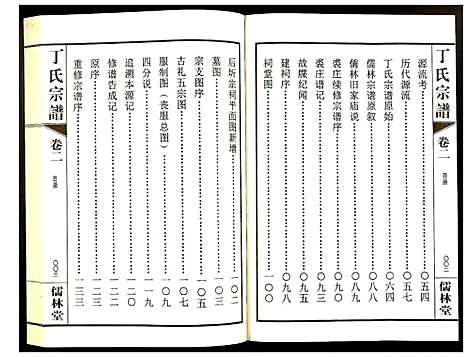 丁氏宗譜
卷二
目录
〇〇三
儒林堂
源流考……〇五四
历代源流……〇五七
丁氏宗谱原始……〇六四
儒林宗谱原叙……
儒林旧家庙说……
裘庄续修宗谱序……
裘庄谱记……
故牒纪闻……〇九八
建祠序……〇九九
祠堂图……一〇〇
后圻宗祠平面图新增……一〇二
墓图……
宗支图序……一〇五
古礼五宗图……
服制图（丧服总图）……
四分说……一一九
追溯本源记……
修谱告成记……
原序……
重修宗谱序……一三三
丁氏宗譜
卷二
目录
〇〇三
儒林堂